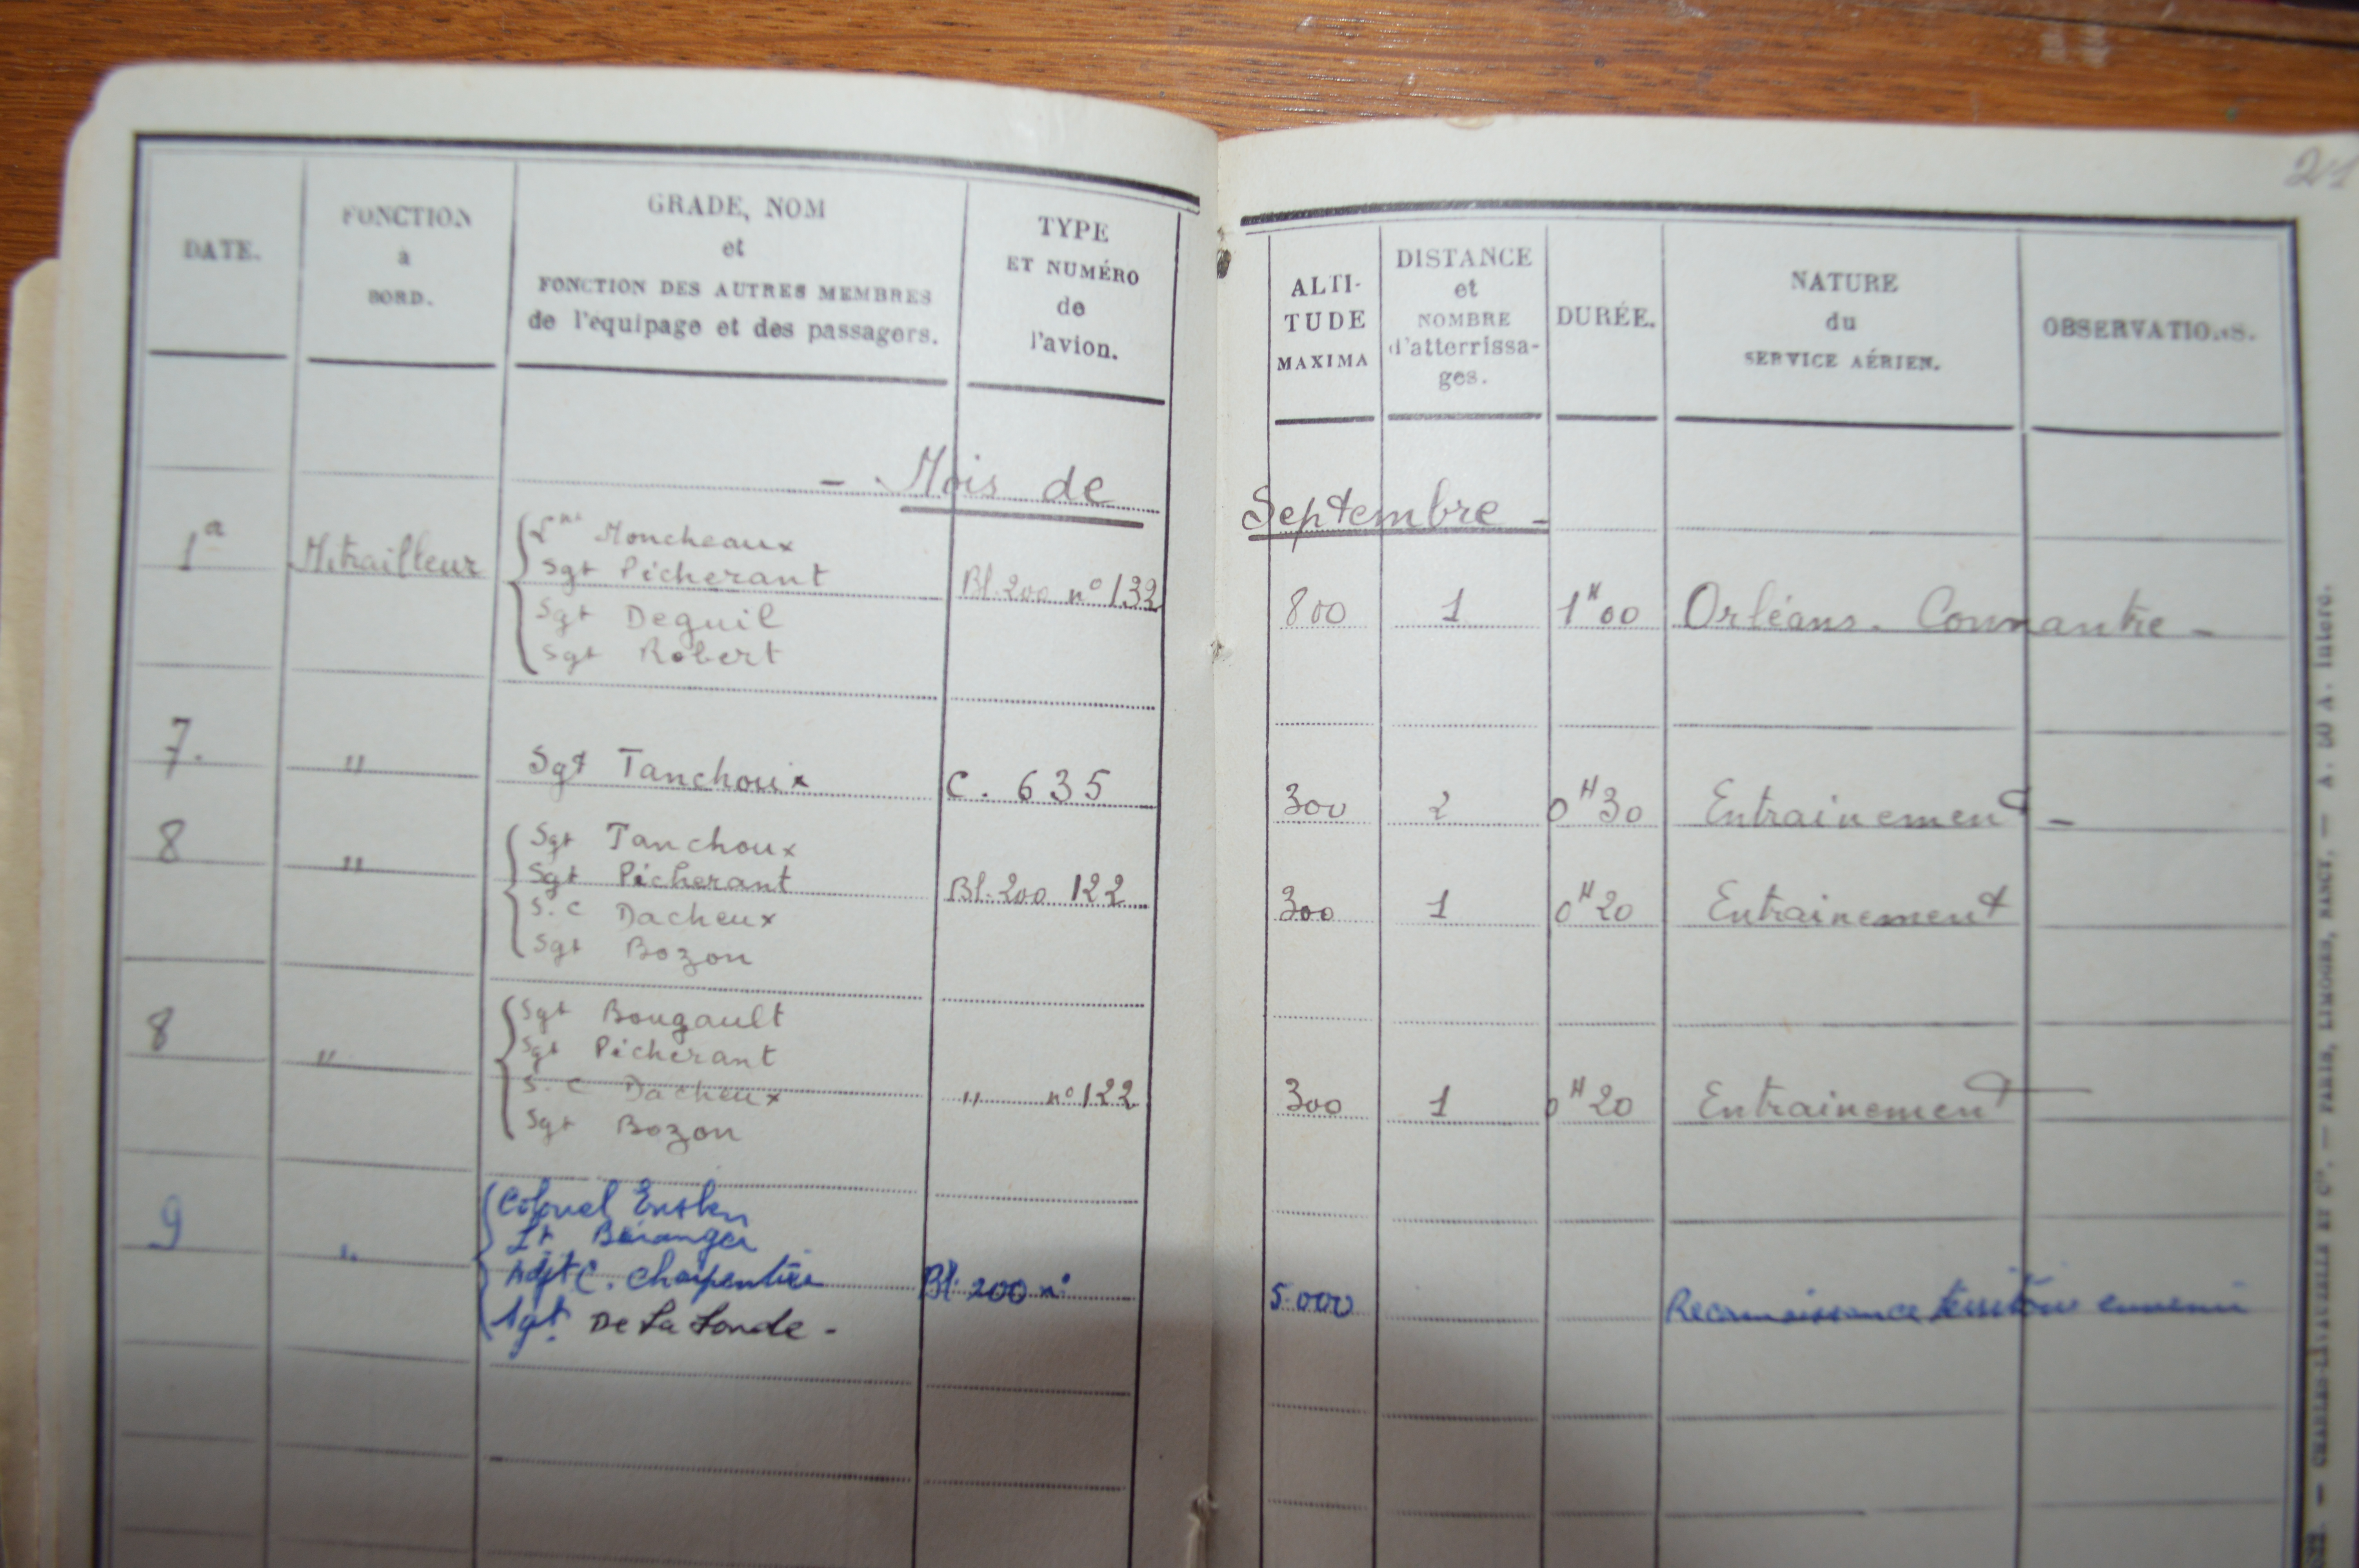 21
DATE.
FONCTION
à
BORD.
GRADE, NOM
et
FONCTION DES AUTRES MEMBRES
de l'équipage et des passagers.
TYPE
ET NUMÉRO
de
l'avion.
ALTI-
TUDE
MAXIMA
DISTANCE
et
NOMBRE
d'atterrissa-
ges.
DURÉE.
NATURE
du
SERVICE AÉRIEN.
OBSERVATIONS.
- Mois de Septembre -
1 Mitrailleur
Moncheaux
Sgt Picherant
Sgt Deguil
Sgt Robert
Bl. 200 n° 132 800 1 1H00 Orléans. Connantre -
7. " Sgt Tanchoux C. 635 300 2 0H30 Entrainement -
8 "
Sgt Tanchoux
Sgt Picherant
S. C Dacheux
Sgt Bozon
Bl. 200 122 300 1 0H20 Entrainement
8 "
Sgt Bougault
Sgt Picherant
S. C Dacheux
Sgt Bozon
" n° 122 300 1 0H20 Entrainement
9 "
Colonel
Lt Béranger
Adjt C. Charpentier
Sgt De La Londe -
Bl. 200 n° 5.000 Reconnaissance territoire ennemi
PARIS, LIMOGES, NANCY. —